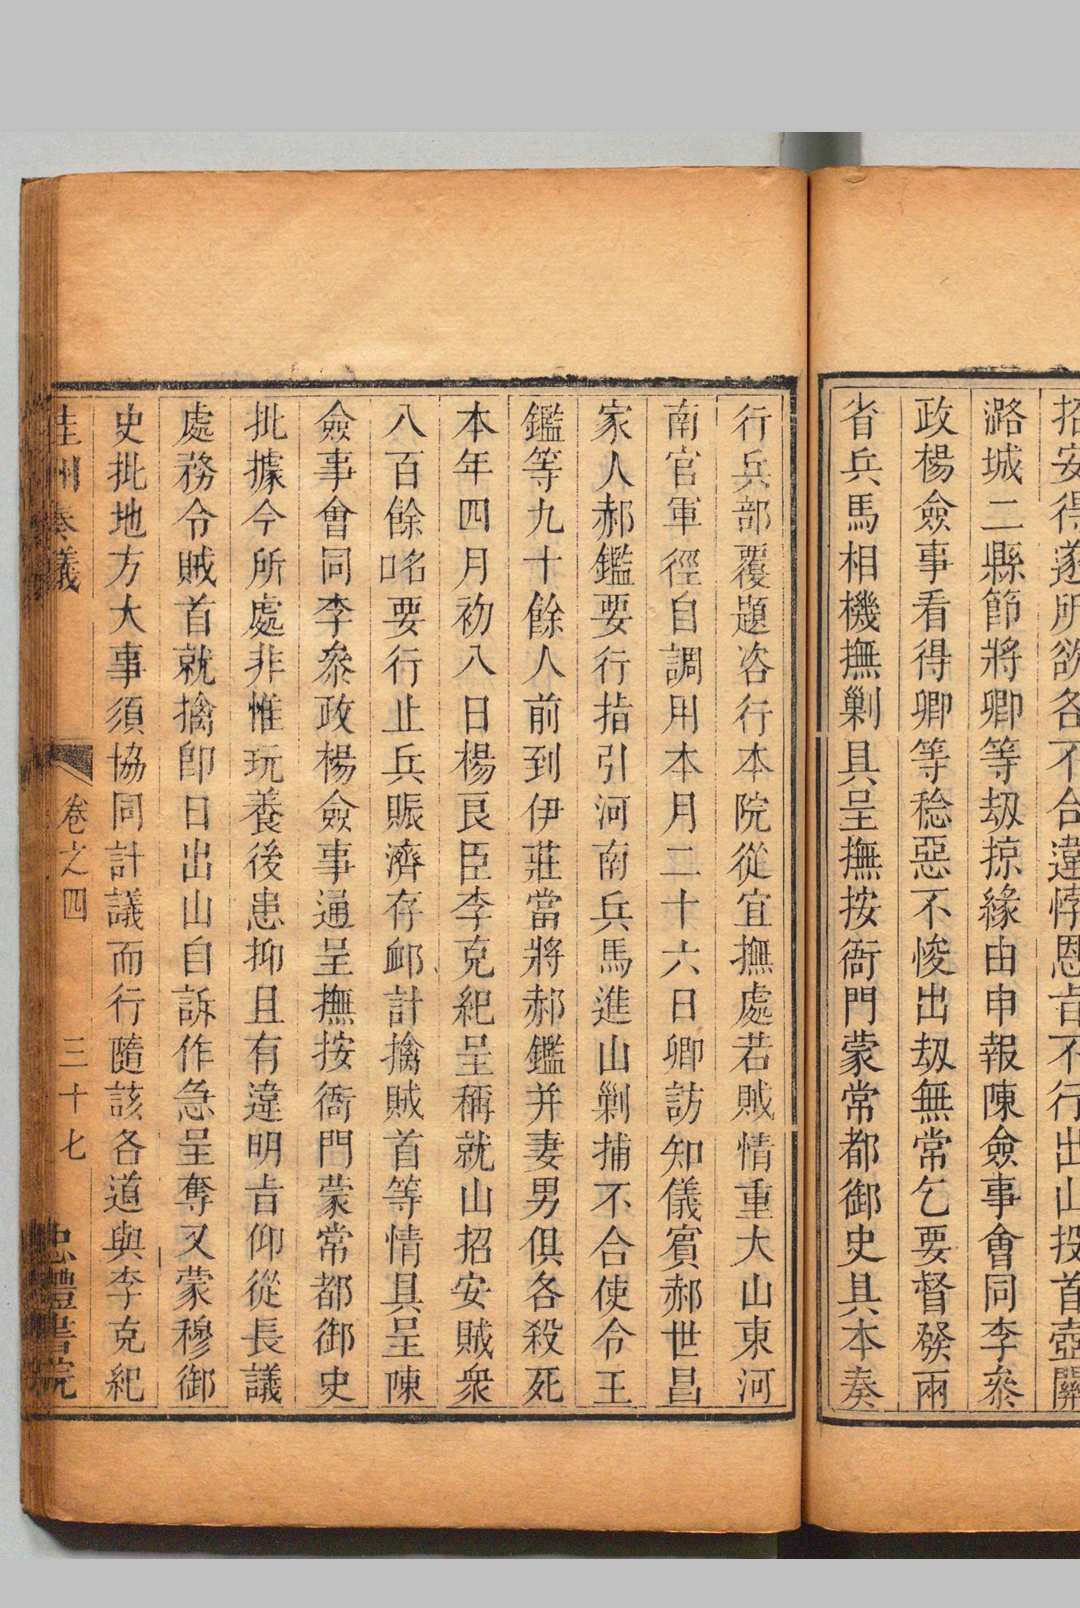 招安得遂所欲各不合違悖恩旨不行出山投首壺關
潞城二縣節將卿等刼掠緣由申報陳僉事會同李叅
政楊僉事看得卿等稔惡不悛出刼無常乞要督發兩
省兵馬相機撫剿具呈撫按衙門蒙常都御史具本奏
行兵部覆題咨行本院從宜撫處若賊情重大山東河
南官軍徑自調用本月二十六日卿訪知儀賔郝世昌
家人郝鑑要行指引河南兵馬進山剿捕不合使令王
鑑等九十餘人前到伊莊當將郝鑑并妻男俱各殺死
本年四月初八日楊良臣李克紀呈稱就山招安賊衆
八百餘咯要行止兵賑濟存邮計擒賊首等情具呈陳
僉事會同李叅政楊僉事通呈撫按衙門蒙常都御史
批據今所處非惟玩養後患抑且有違明旨仰從長議
處務令賊首就擒卽日出山自訴作急呈奪又蒙穆御
史批地方大事須協同計議而行隨該各道與李克紀
桂州奏議
卷之四
三十七
忠禮書院